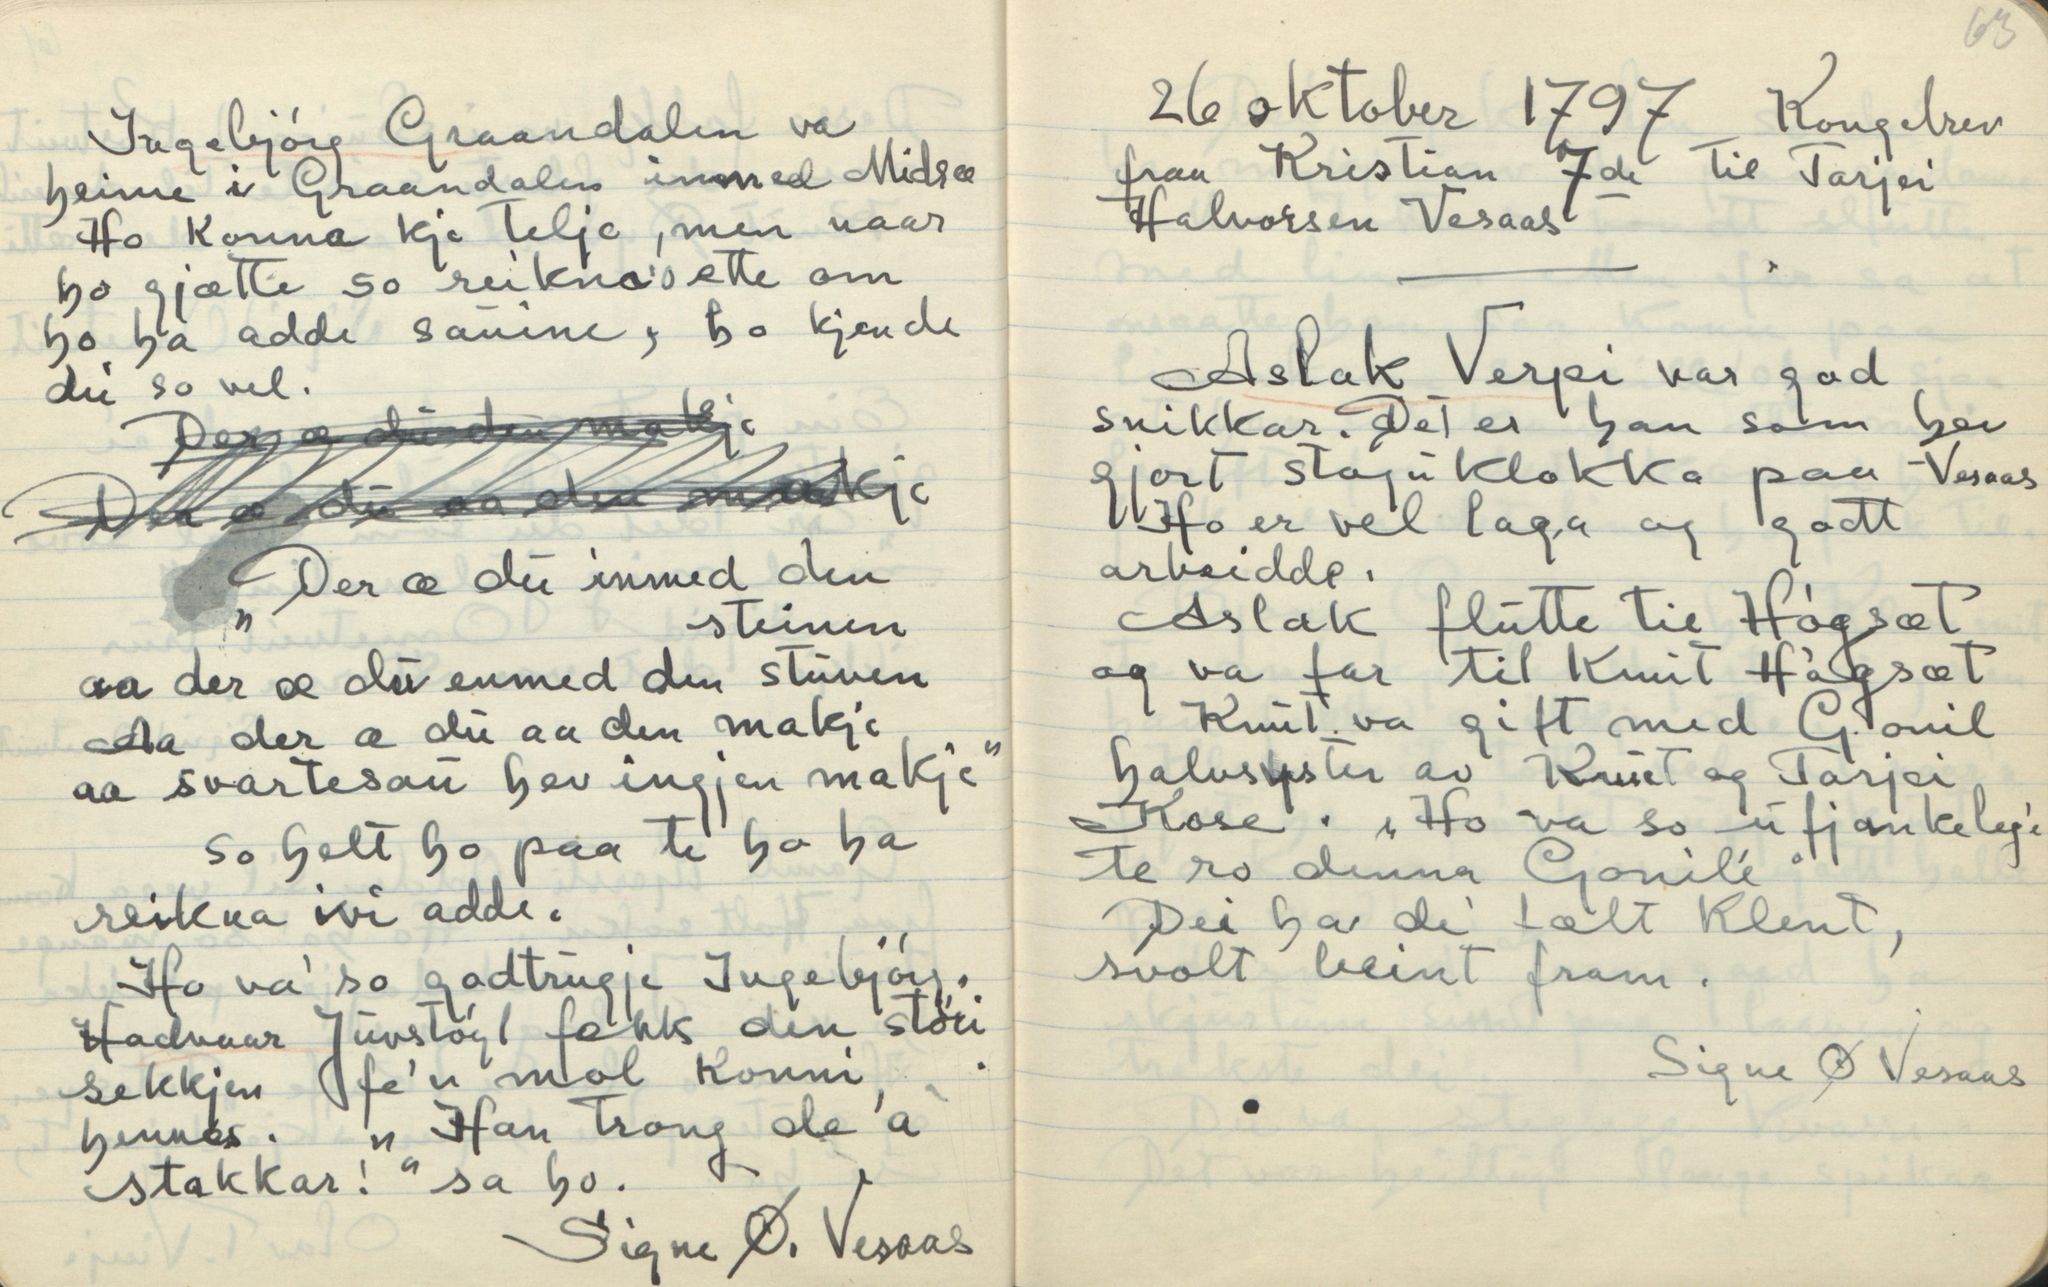 Ingebjórg Graandalen va
heime i Graandalen innmed Midsæ
Ho konna kje telje, men naar
ho gjætte so reikna'o ette om
ho ha adde sauine, ho kjende
dei so vel.
Der æ dū den makje
Der æ dū aa den makje
„Der æ dū inmed den
steinen
aa der æ dū enmed den stūven
Aa der æ dū aa den makje
aa svartesaū hev ingjen makje"
so helt ho paa te ho ha
reikna ivi adde.
Ho va' so godtrūgje Ingebjórg.
Hadvaar Jūvstógl fekk den stōri
sekkjen fe'n mol konni
hennes. „Han trong de'a
stakkar!" sa ho.
Signe Ø. Vesaas
63
26 oktober 1797 Kongebrev
fraa Kristian 7de til Tarjei
Halvorsen Vesaas
Aslak Verpi var god
snikkar. Det er han som hev
gjort stoguklokka paa Vesaas
Ho er vel laga og godt
arbeidde.
Aslak flūtte til Hógsæt
og va far til Knūt Hógsæt
Knūt va gift med Gonil
halvsyster av Knūt og Tarjei
Kose. „Ho va so ūfjankeleg'e
te ro denna Gonile"
Dei ha de' tælt klent,
svolt beint fram.
Signe Ø Vesaas